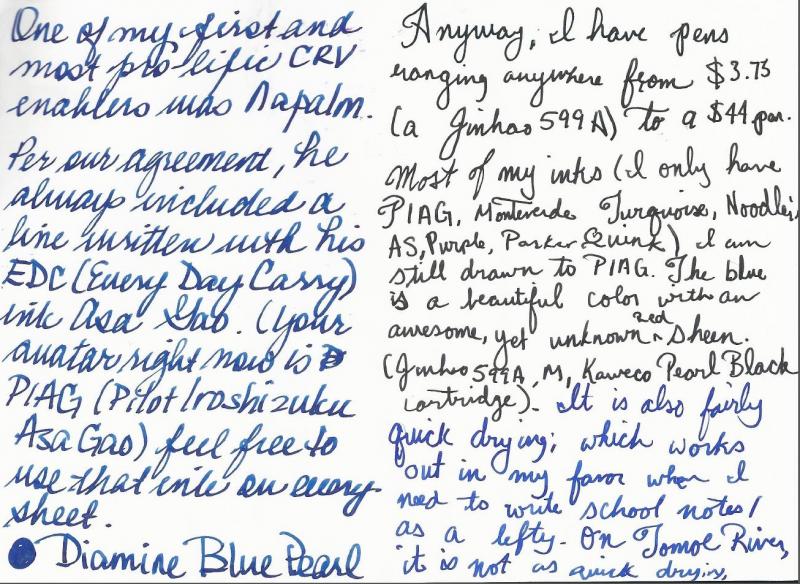 One of my first and
most prolific CRV
enablers was Napalm.
Per our agreement, he
always included a
line written with his
EDC (Every Day Carry)
ink Asa Gao. (your
avatar right now is
PIAG (Pilot Iroshizuku
Asa Gao) feel free to
use that ink on every
sheet.
Diamine Blue Pearl
Anyway, I have pens
ranging anywhere from $3.75
(a Jinhao 599A) to a $44 pen.
Most of my inks (I only have
PIAG, Monteverde Turquoise, Noodler's
AS, Purple, Parker Quink) I am
still drawn to PIAG. The blue
is a beautiful color with an
awesome, yet unknown red sheen.
(Jinhao 599A, M, Kaweco Pearl Black
cartridge). It is also fairly
quick drying; which works
out in my favor when I
need to write school notes/
as a lefty. On Tomoe River,
it is not as quick drying,